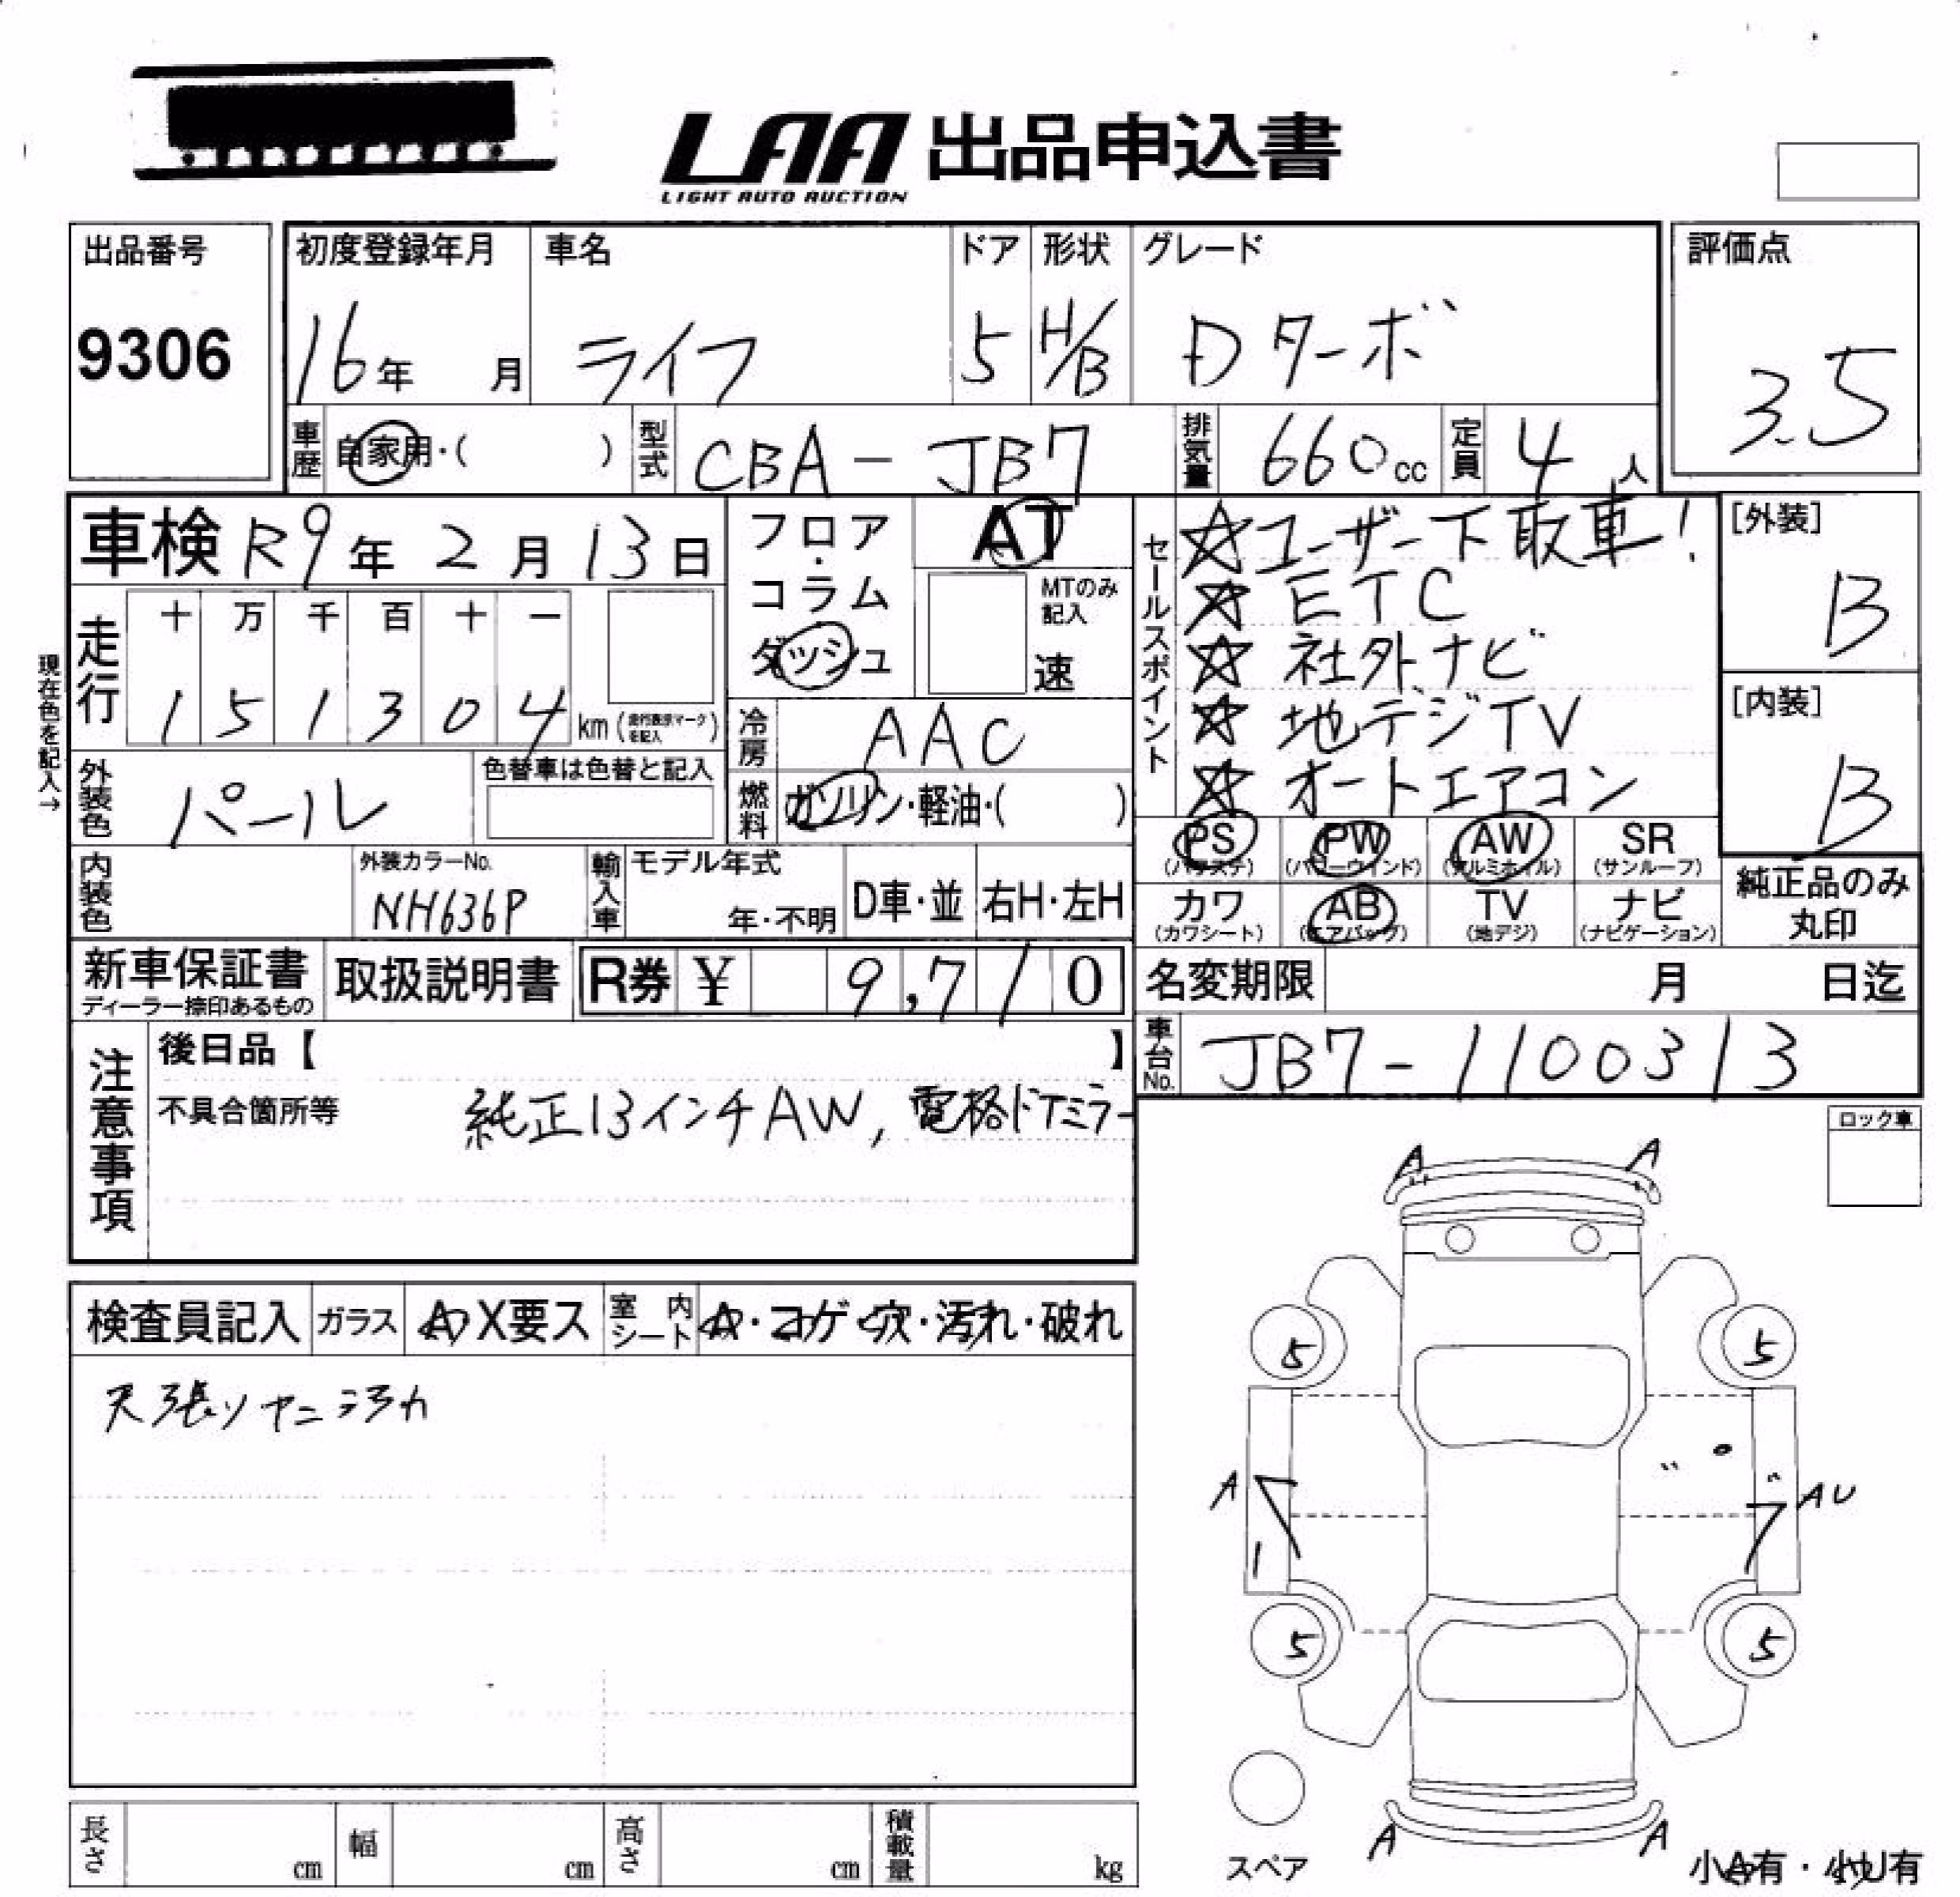 LAA 出品申込書
LIGHT AUTO AUCTION
出品番号 9306
初度登録年月 16年 月
車名 ライフ
ドア 5
形状 H/B
グレード Dターボ
評価点 3.5
車歴 自家用・( )
型式 CBA-JB7
排気量 660cc
定員 4人
車検 R9年 2月 13日
フロア・コラム ダッシュ
AT
MTのみ記入
速
セールスポイント
☆ユーザー下取車!
☆ETC
☆社外ナビ
☆地デジTV
☆オートエアコン
[外装] B
[内装] B
現在色を記入→
走行
十 万 千 百 十 一
1 5 1 3 0 4 km (走行表示マークを記入)
冷房 AAC
燃料 ガソリン・軽油・( )
外装色 パール
色替車は色替と記入
PS (パワステ) PW (パワーウインド) AW (アルミホイル) SR (サンルーフ)
カワ (カワシート) AB (エアバッグ) TV (地デジ) ナビ (ナビゲーション)
純正品のみ丸印
内装色
外装カラーNo. NH636P
輸入車 モデル年式 年・不明 D車・並 右H・左H
新車保証書 ディーラー捺印あるもの
取扱説明書
R券 ¥ 9,710
名変期限 月 日迄
車台No. JB7-1100313
注意事項
後日品【 】
不具合箇所等 純正13インチAW, 電格ドアミラー
ロック車
検査員記入 ガラス A X要ス 室内シート A・コゲ・穴・汚れ・破れ
天張りヤニ
A A
5 5
A AU
1
5 5
A A
スペア
小A有・小U有
長さ cm 幅 cm 高さ cm 積載量 kg